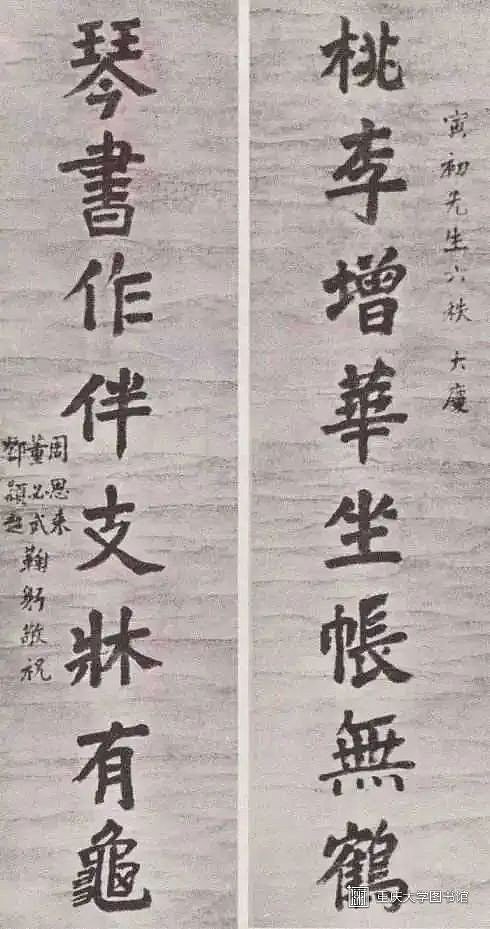 寅初先生六秩大慶
桃李增華坐帳無鶴
琴書作伴支牀有龜
周恩来
董必武
鄧穎超
鞠躬敬祝
重庆大学图书馆